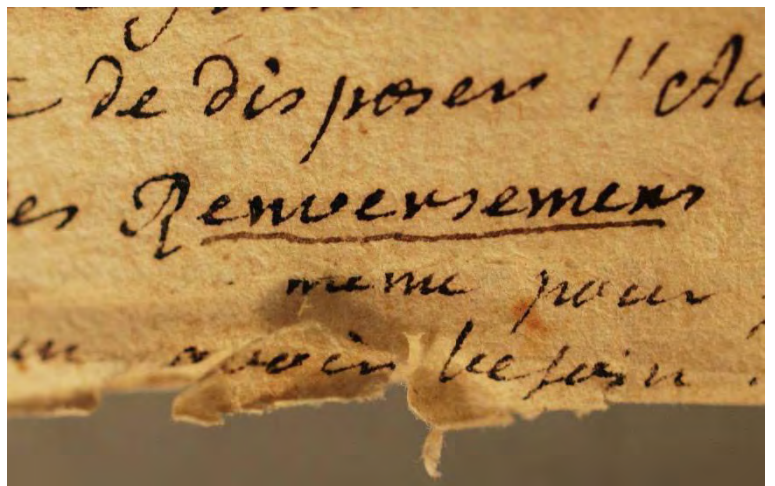 de disposer l'
Renversemens
meme pour
avoir besoin